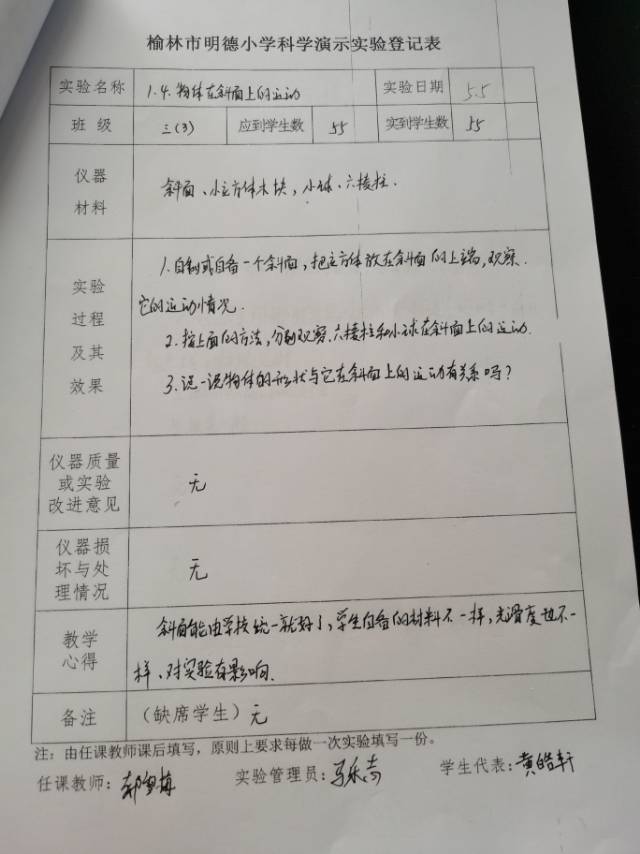 榆林市明德小学科学演示实验登记表
实验名称 1.4.物体在斜面上的运动 实验日期 5.5
班 级 三(3) 应到学生数 55 实到学生数 55
仪器
材料
斜面、小立方体木块，小球、六棱柱.
实验
过程
及其
效果
1.自制或自备一个斜面，把立方体放在斜面的上端，观察.
它的运动情况.
2.按上面的方法，分别观察，六棱柱和小球在斜面上的运动.
3.说一说物体的形状与它在斜面上的运动有关系吗？
仪器质量
或实验
改进意见
无
仪器损
坏与处
理情况
无
教学
心得
斜面能由学校统一就好了，学生自备的材料不一样，光滑度也不一
样、对实验有影响.
备注 （缺席学生）无
注：由任课教师课后填写，原则上要求每做一次实验填写一份。
任课教师： 实验管理员： 学生代表：黄皓轩